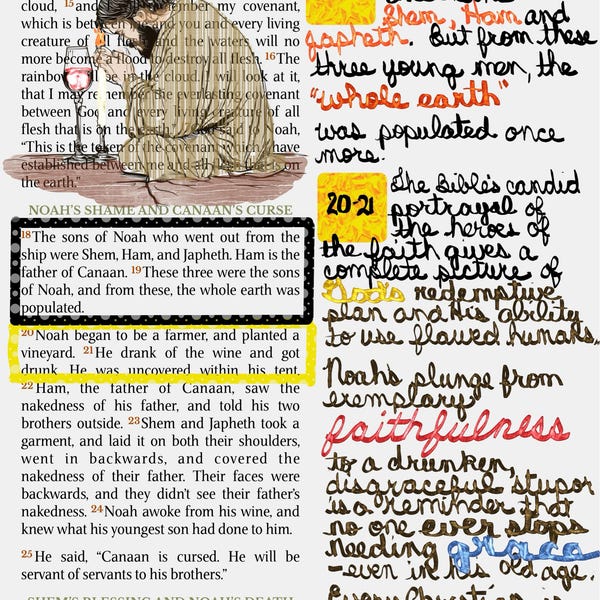 cloud, 15and I remember my covenant,
which is between me and you and every living
creature of and the waters will no
more become a flood to destroy all flesh. 16The
rainbow be in the cloud. I will look at it,
that I may remember the everlasting covenant
between God and every living creature of all
flesh that is on the earth." said to Noah,
"This is the token of the covenant which I have
established between me and all flesh that is on
the earth."
NOAH'S SHAME AND CANAAN'S CURSE
18The sons of Noah who went out from the
ship were Shem, Ham, and Japheth. Ham is the
father of Canaan. 19These three were the sons
of Noah, and from these, the whole earth was
populated.
20Noah began to be a farmer, and planted a
vineyard. 21He drank of the wine and got
drunk. He was uncovered within his tent.
22Ham, the father of Canaan, saw the
nakedness of his father, and told his two
brothers outside. 23Shem and Japheth took a
garment, and laid it on both their shoulders,
went in backwards, and covered the
nakedness of their father. Their faces were
backwards, and they didn't see their father's
nakedness. 24Noah awoke from his wine, and
knew what his youngest son had done to him.
25He said, "Canaan is cursed. He will be
servant of servants to his brothers."
SHEM'S BLESSING AND NOAH'S DEATH
Shem, Ham and
Japheth. But from these
three young men, the
"whole earth"
was populated once
more.
20-21
The Bible's candid
portrayal of
the heroes of
the faith gives a
complete picture of
God's redemptive
plan and His ability
to use flawed humans.
Noah's plunge from
exemplary
faithfulness
to a drunken,
disgraceful stupor
is a reminder that
no one ever stops
needing grace
-even in his old age.
Every Christian is